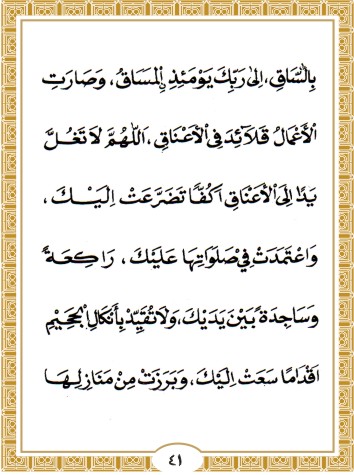 بِالسَّاقِ، اِلىٰ رَبِّكَ يَوْمَئِذٍ اِلْمَسَاقُ، وَصَارَتِ
الْأَعْمَالُ قَلَآئِدَ فِى الْأَعْنَاقِ، اَللّٰهُمَّ لَا تَغُلَّ
يَدًا اِلَى الْأَعْنَاقِ اَكُفًّا تَضَرَّعَتْ اِلَيْكَ،
وَاعْتَمَدَتْ فِيْ صَلَوَاتِهَا عَلَيْكَ، رَاكِعَةً
وَسَاجِدَةً بَيْنَ يَدَيْكَ، وَلَا تُقَيِّدْ بِأَنْكَالِ الْجَحِيْمِ
اَقْدَامًا سَعَتْ اِلَيْكَ، وَبَرَزَتْ مِنْ مَنَازِلِهَا
٤١